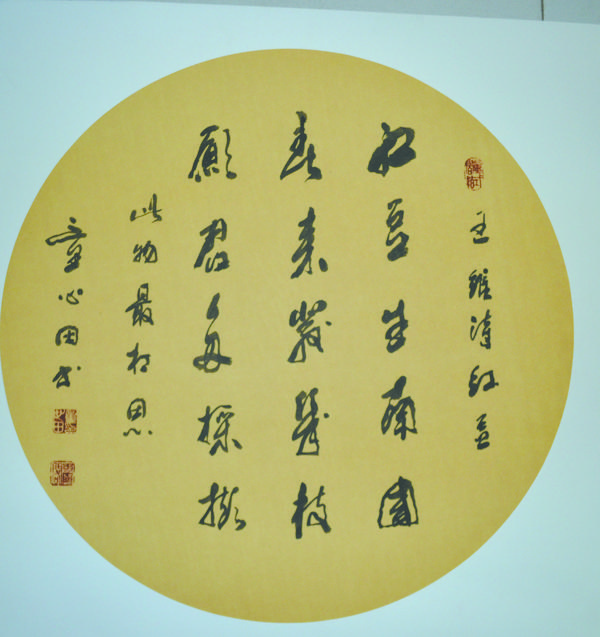 王維詩紅豆
紅豆生南國
春來發幾枝
願君多採擷
此物最相思
童心田书